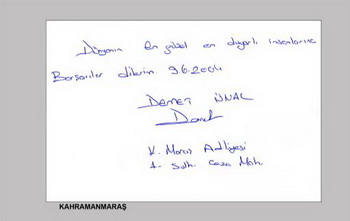 Dünyanın en güzel en duyarlı insanlarına
Başarılar dilerim. 9.6.2004
DEMET ÜNAL
Demet
K. Maraş Adliyesi
1. Sulh. Ceza Mah.
KAHRAMANMARAŞ